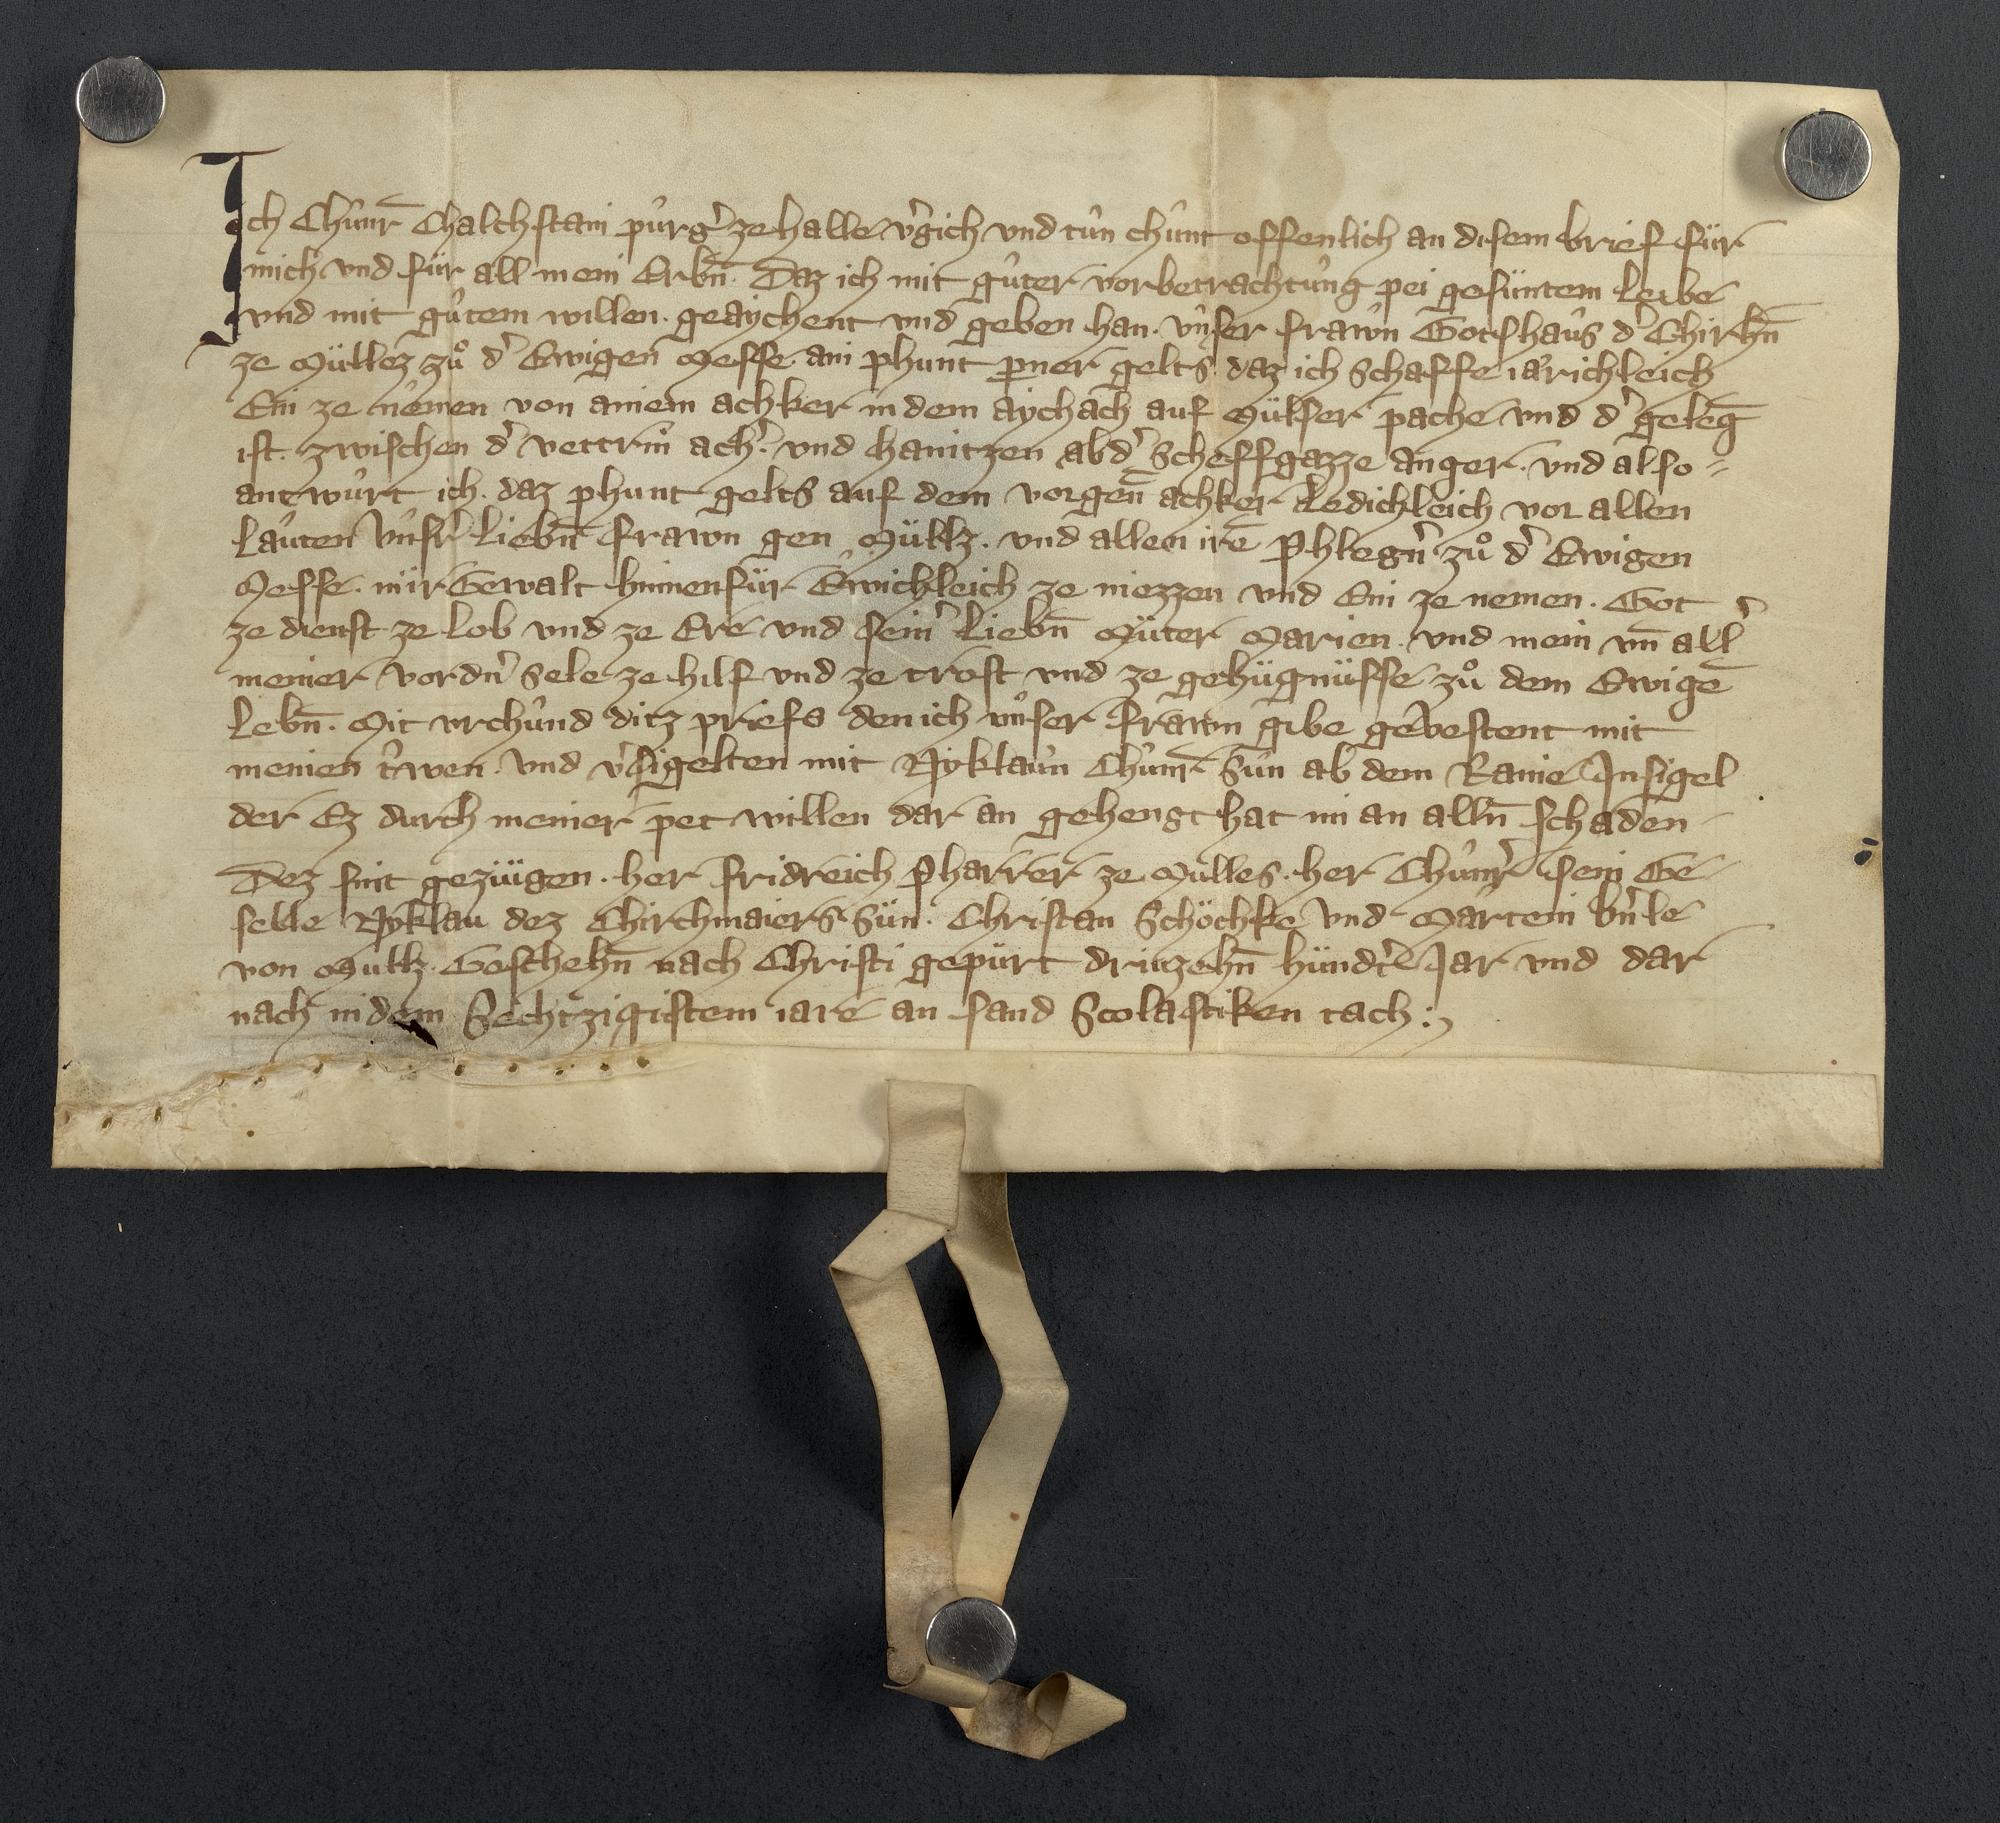 Ich Chunr̄ Chalchstain purg̉ ze halle v̉gich vnd tůn chůnt offenlich an disem brief für
mich vnd für all mein Erbn̄. Daz ich mit gůter vorbetrachtůng pei gesůntem leibe
vnd mit gůtem willen. geaychent vnd geben han. vnser frawn Gotshaus d̉ Chirhn̄
ze Müllez zů d̉ Ewigen Messe. ain phunt perner gelts daz ich schaffe iärichleich
Ein ze nemen von ainem achker in dem aychach auf Mülser pache vnd d̉ geleḡ
ist. zwischen d̉ vettrin̄ ach̉. vnd hanitzen ab d̉ Scheffgazze anger. vnd also=
antwürt ich. daz phunt gelts auf dem vorgen̄ achker ledichleich vor allen
läuten vnsr̉ liebn̄ frawn gen Müllz. vnd allen irē Phlegn̉ zů d̉ Ewigen
Messe. mir Gewalt hinnenfür Ewichleich ze niezzen vnd Ein ze nemen. Got
ze dienst ze lob vnd ze Ere vnd sein̉ liebn̄ Müter Marien. vnd mein vn̄ all̉
meiner vordn̉ Sele ze hilf vnd ze trost vnd ze gehügnüsse zů dem Ewigē
lebn̄. Mit vrchünd ditz priefs den ich vnser frawn gibe gevestent mit
meinen trwen. vnd v̉sigelten mit Nyklaun Chunr̄ Sun ab dem Raine Insigel
der Ez durch meiner pet willen dar an gehengt hat im an alln̄ schaden
Dez sint gezüügen. her fridreich Pharrer ze Mülles. her Chunr̄ sein Ge-
selle Nyklau dez Chirchmaiers Sün. Christan Schöchke vnd Märtein
von Müllz. Geschehn̄ nach Christi gepürt driuzehn̄ hundt̉ Jar vnd dar
nach in dem Sechtzigistem iare an sand Scolastiken tach :